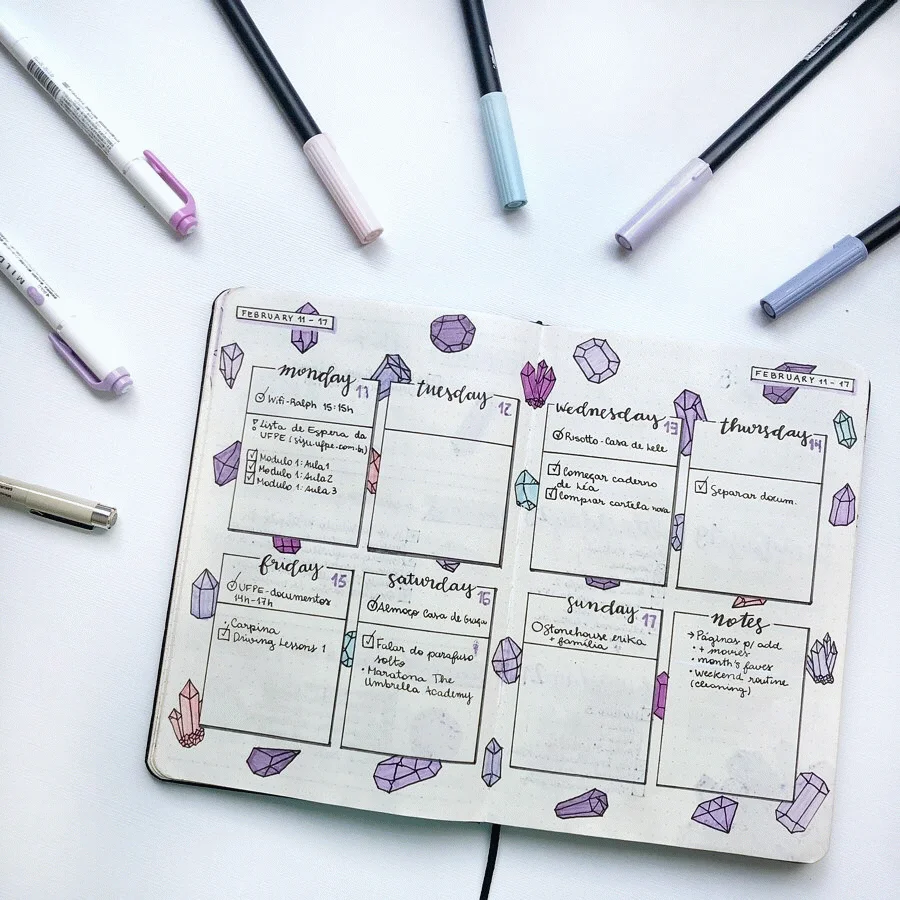 MILD
FEBRUARY 11 - 17
FEBRUARY 11 - 17
monday 11
Wifi-Ralph 15:15h
Lista de Espera da
UFPE (sisu.ufpe.com.br)
Modulo 1: Aula 1
Modulo 1: Aula 2
Modulo 1: Aula 3
tuesday 12
wednesday 13
Risotto-Casa de Lele
Começar caderno
de
comprar cartela nova
thursday 14
Separar docum.
friday 15
UFPE-documentos
14h-17h
Carpina
Driving Lessons 1
saturday 16
Almoço Casa de
Falar do parafuso
solto
Maratona The
Umbrella Academy
sunday 17
Stonehouse erika
+ família
notes
→ Páginas p/ add
• + movies
• month's faves
• weekend routine
(cleaning)